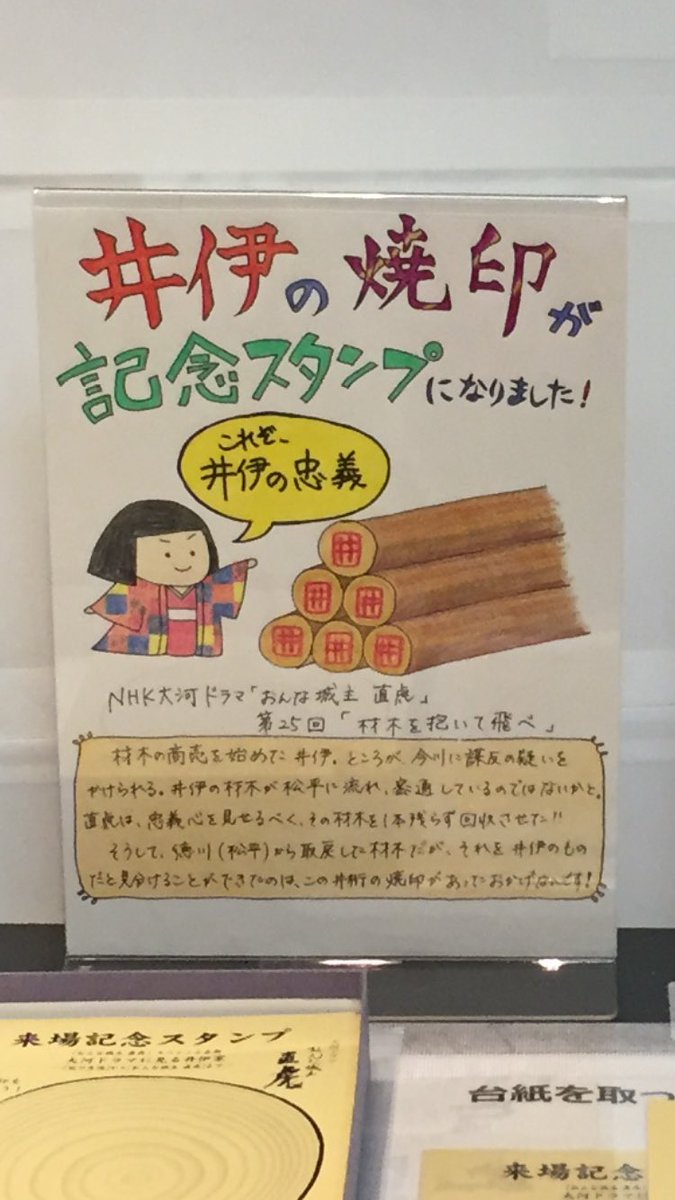 井伊の焼印が
記念スタンプになりました!
これぞ、
井伊の忠義
井
井
井
井
井
井
NHK大河ドラマ「おんな城主 直虎」
第25回「材木を抱いて飛べ」
材木の商売を始めた井伊。ところが、今川に謀反の疑いを
かけられる。井伊の材木が松平に流れ、密通しているのではないかと。
直虎は、忠義心を見せるべく、その材木を1本残らず回収させた!!
そうして、徳川(松平)から取戻した材木だが、それを井伊のもの
だと見分けることができたのは、この井桁の焼印があったおかげなんです!
来場記念スタンプ
大河ドラマに見る井伊家
直虎
台紙を取っ
来場記念
大河ドラマに